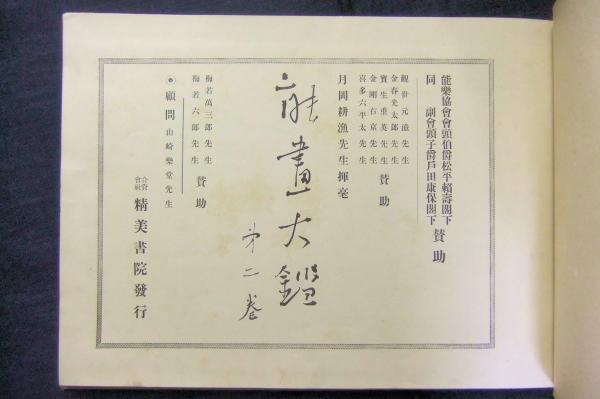 能樂協會會頭伯爵松平賴壽閣下
同　副會頭子爵戶田康保閣下
贊助
觀世元滋先生
金春光太郎先生
寶生重英先生
金剛右京先生
喜多六平太先生
贊助
月岡耕漁先生揮毫
能畫大鑑
第二卷
梅若萬三郎先生
梅若六郎先生
贊助
顧問 山崎樂堂先生
合資會社 精美書院發行